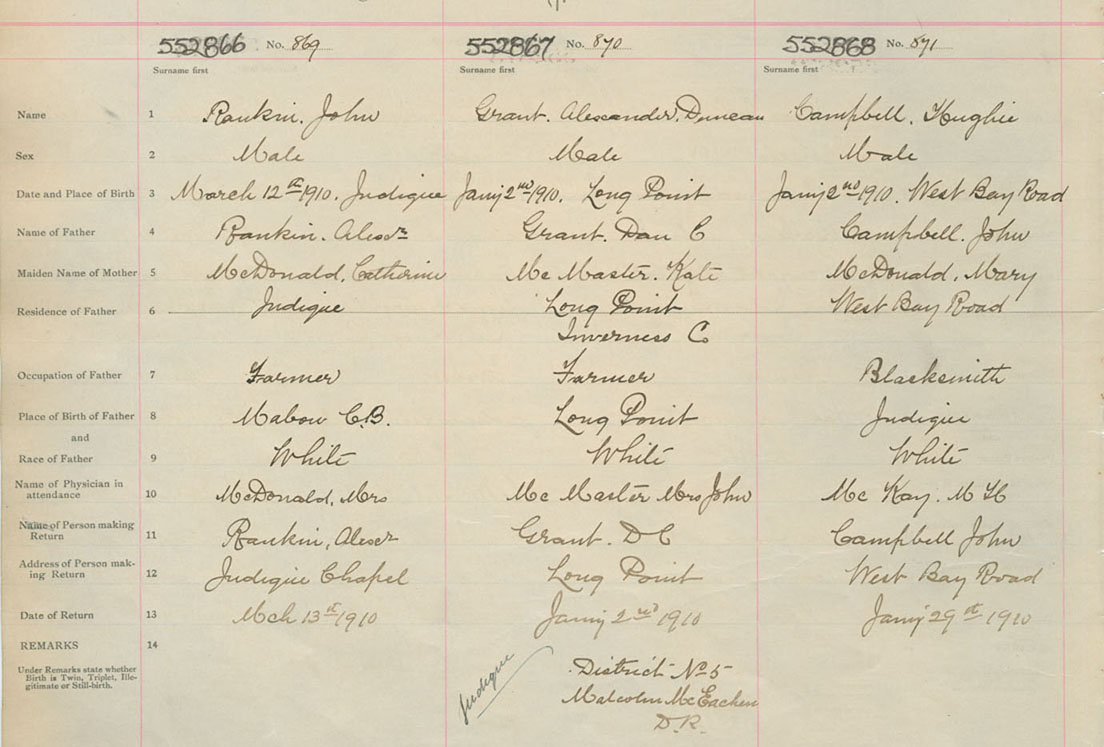 552866 No. 869 552867 No. 870 552868 No. 871
Surname first Surname first Surname first
Name 1 Rankin. John Grant. Alexander, Duncan Campbell. Hughie
Sex 2 Male Male Male
Date and Place of Birth 3 March 12th 1910. Judique Jany 2nd 1910. Long Point Jany 2nd 1910. West Bay Road
Name of Father 4 Rankin. Alexdr Grant. Dan C Campbell. John
Maiden Name of Mother 5 McDonald, Catherine Mc Master. Kate McDonald. Mary
Residence of Father 6 Judique Long Point West Bay Road
Inverness Co
Occupation of Father 7 Farmer Farmer Blacksmith
Place of Birth of Father 8 Mabou C.B. Long Point Judique
and
Race of Father 9 White White White
Name of Physician in
attendance 10 McDonald, Mrs Mc Master Mrs John Mc Kay. M H
Name of Person making
Return 11 Rankin, Alexr Grant. D C Campbell John
Address of Person mak-
ing Return 12 Judique Chapel Long Point West Bay Road
Date of Return 13 Mch 13th 1910 Jany 2nd 1910 Jany 29th 1910
REMARKS 14
Under Remarks state whether
Birth is Twin, Triplet, Ille-
gitimate or Still-birth.
Judique
District No 5
Malcolm McEachen
D.R.